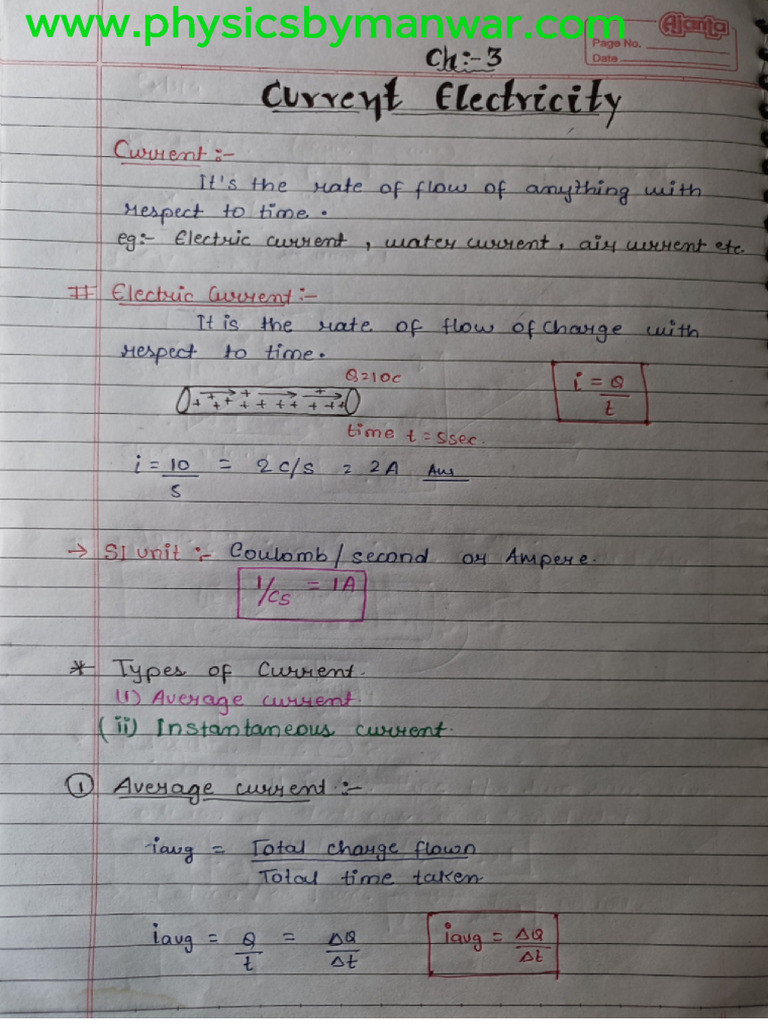 www.physicsbymanwar.com
Ajanta
Page No.
Date
Ch:-3
Current Electricity
Current :-
It's the rate of flow of anything with
respect to time.
eg:- Electric current, water current, air current etc.
# Electric Current :-
It is the rate of flow of charge with
respect to time.
Q=10C
i = Q/t
+ + + + + + + + + + + + +
time t = 5sec.
i = 10/5 = 2C/S = 2A Ans
→ SI unit :- Coulomb/second or Ampere.
1/CS = 1A
* Types of Current.
(i) Average current.
(ii) Instantaneous current.
① Average current :-
iavg = Total charge flown
Total time taken.
iavg = Q/t = ΔQ/Δt iavg = ΔQ/Δt